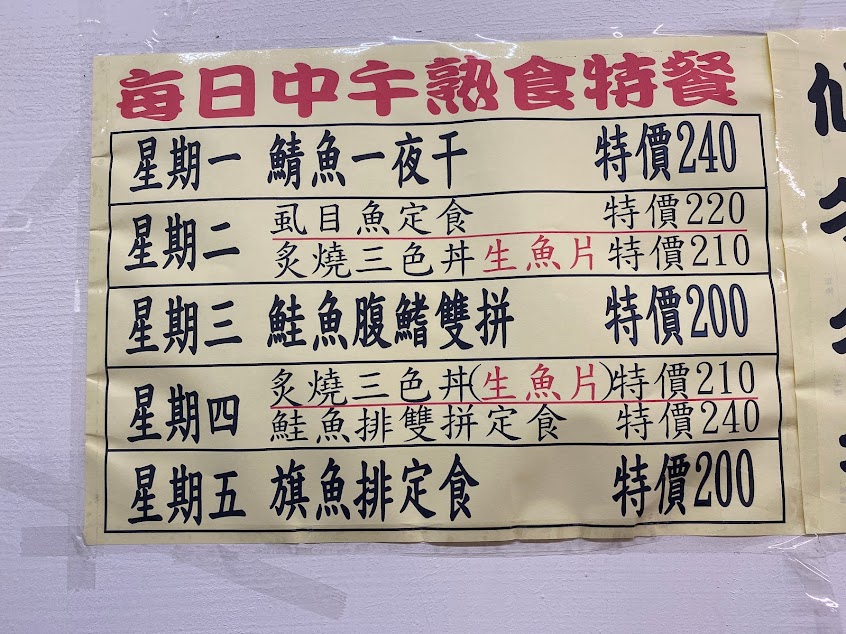 每日中午熟食特餐
星期一 鯖魚一夜干 特價240
星期二 虱目魚定食 特價220
炙燒三色丼生魚片特價210
星期三 鮭魚腹鰭雙拼 特價200
星期四 炙燒三色丼(生魚片)特價210
鮭魚排雙拼定食 特價240
星期五 旗魚排定食 特價200